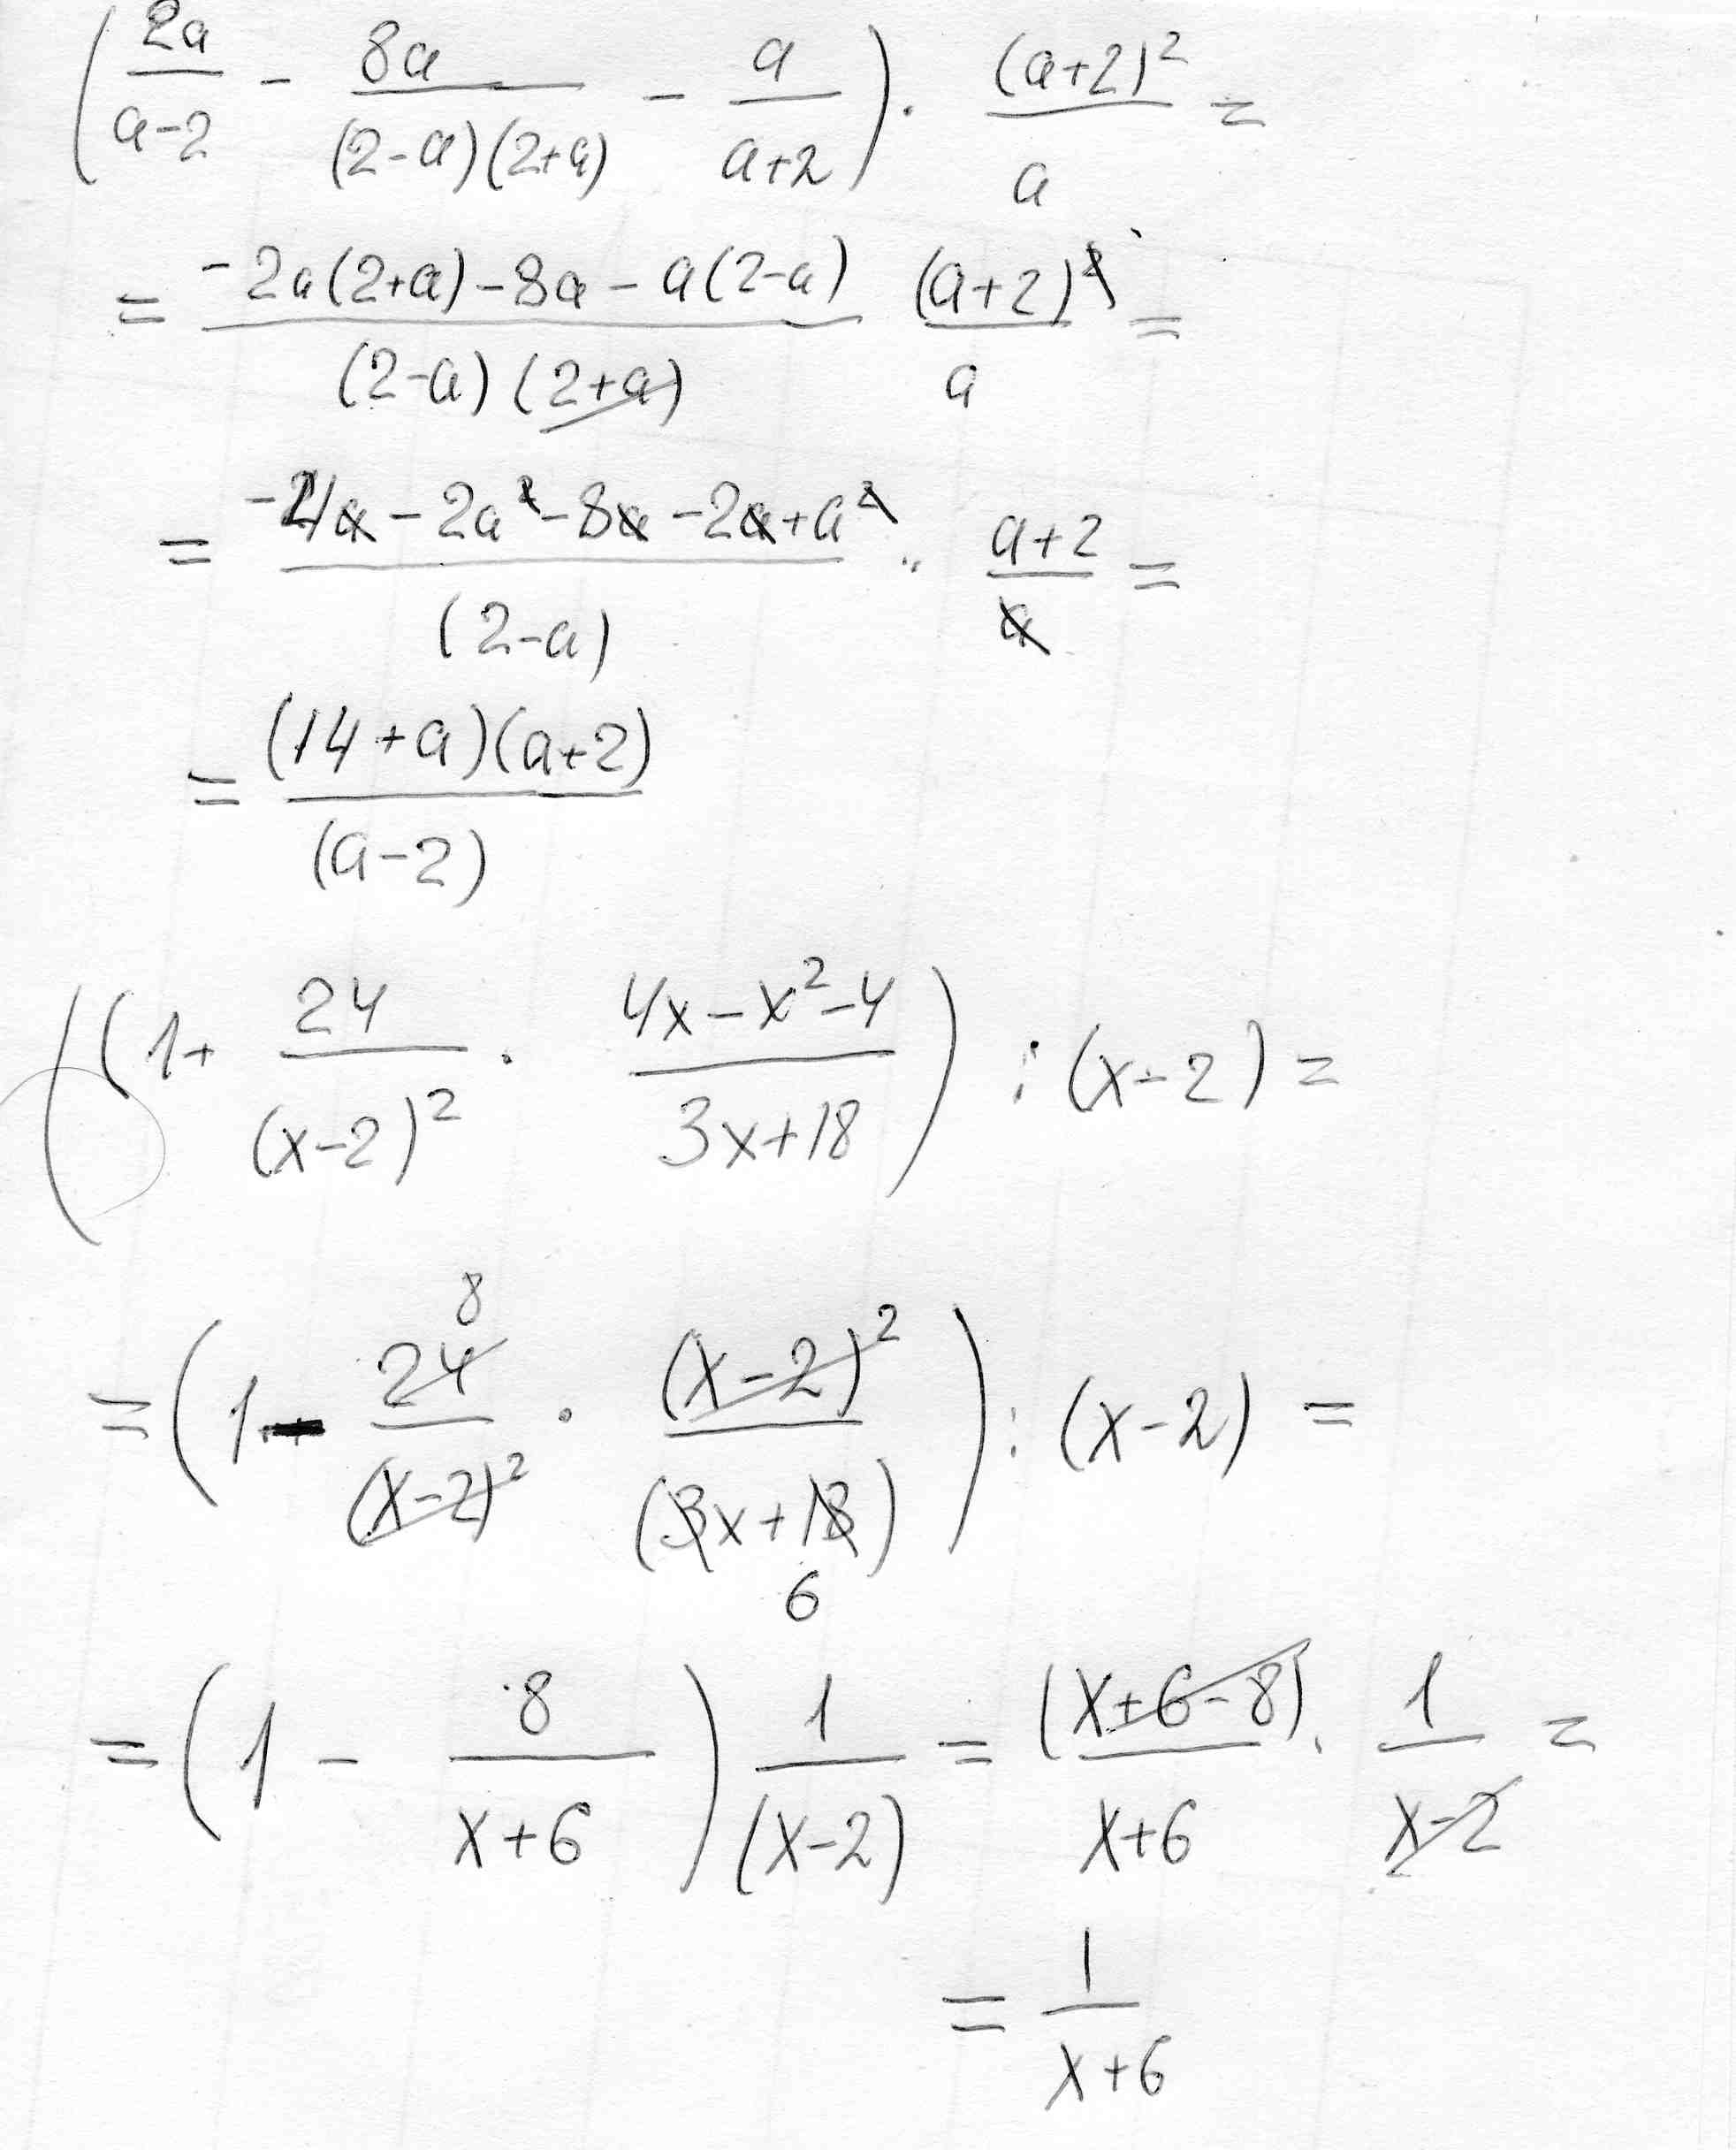 (2a/(a-2) - 8a/((2-a)(2+a)) - a/(a+2)) · (a+2)²/a =
= (-2a(2+a)-8a-a(2-a))/((2-a)(2+a)) (a+2)²/a =
= (-4a-2a²-8a-2a+a²)/(2-a) · (a+2)/a =
= (14+a)(a+2)/(a-2)
((1+ 24/(x-2)² · (4x-x²-4)/(3x+18)) : (x-2) =
= (1- 24/(x-2)² · (x-2)²/(3x+18)) : (x-2) =
8
6
= (1 - 8/(x+6)) 1/(x-2) = (x+6-8)/(x+6) · 1/(x-2) =
= 1/(x+6)